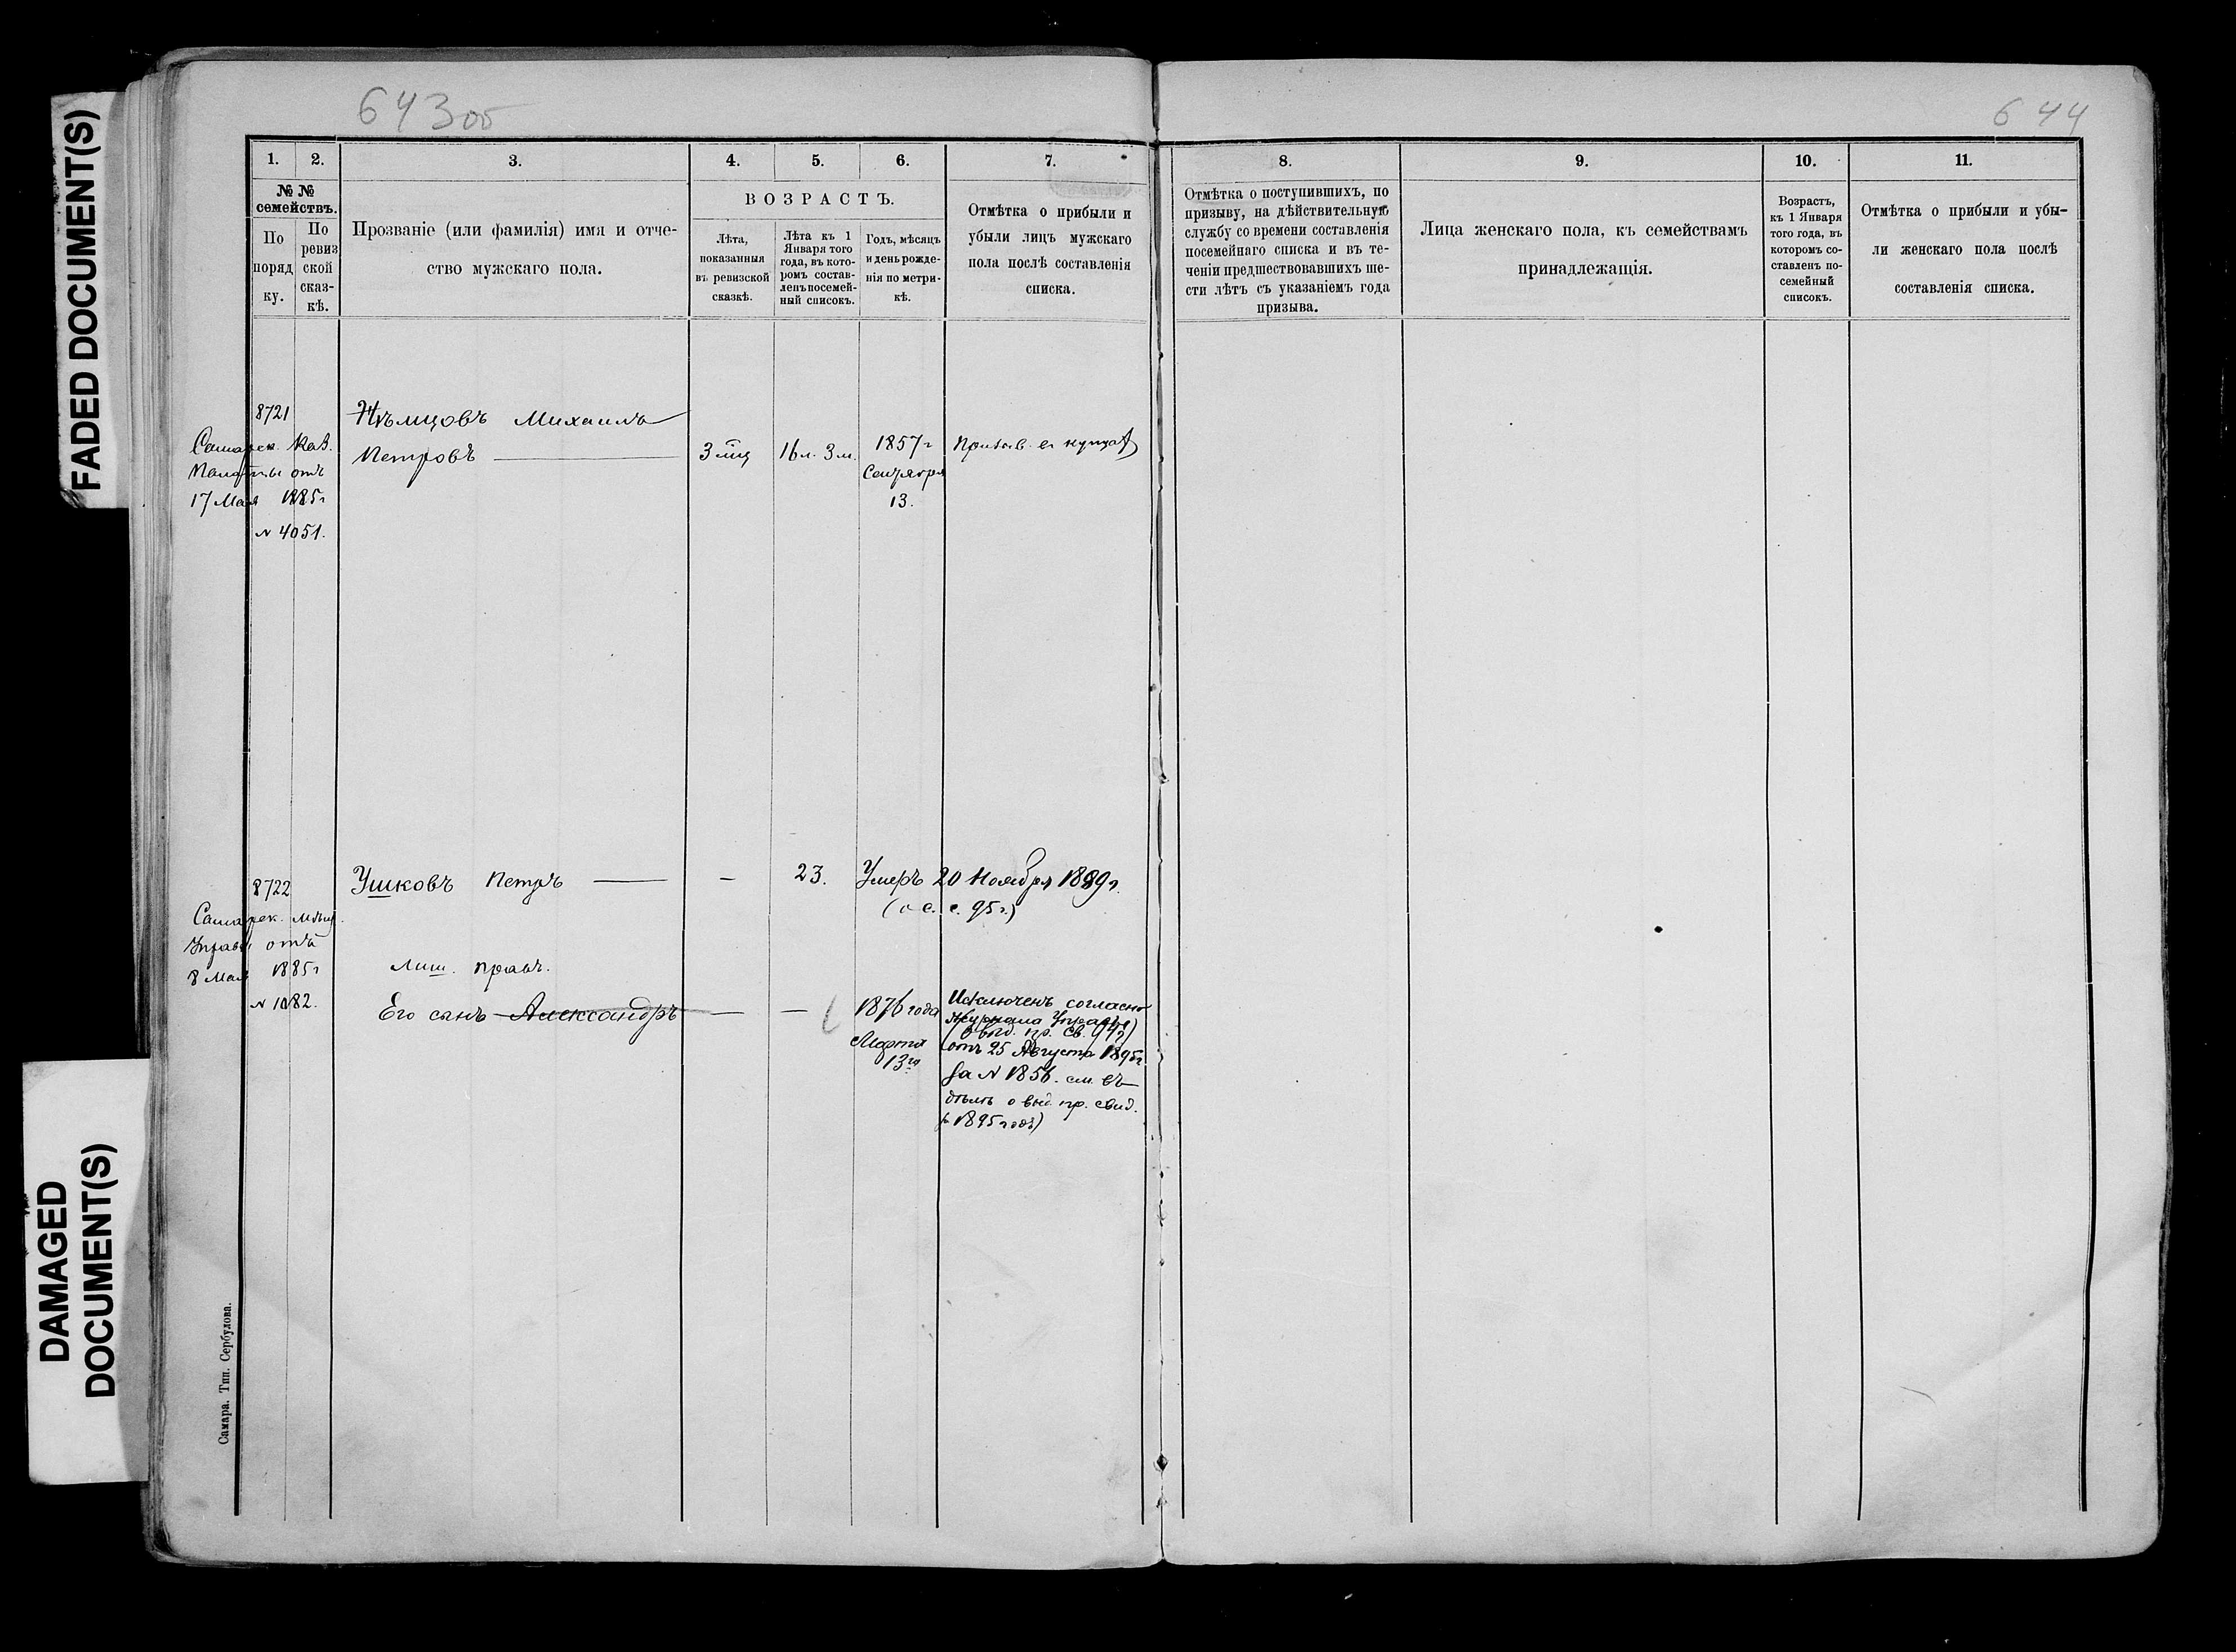 FADED DOCUMENT(S)
DAMAGED
DOCUMENT(S)
643 об
644
1.
2.
3.
4.
5.
6.
7.
8.
9.
10.
11.
№ №
семействъ.
По
поряд
ку.
По
ревиз
ской
сказ-
кѣ.
Прозваніе (или фамилія) имя и отче-
ство мужскаго пола.
ВОЗРАСТЪ.
Лѣта,
показанныя
въ ревизской
сказкѣ.
Лѣта къ 1
Января того
года, въ кото-
ромъ состав-
ленъ посемей-
ный списокъ.
Годъ, мѣсяцъ
и день рожде-
нія по метри-
кѣ.
Отмѣтка о прибыли и
убыли лицъ мужскаго
пола послѣ составленія
списка.
Отмѣтка о поступившихъ, по
призыву, на дѣйствительную
службу со времени составленія
посемейнаго списка и въ те-
ченіи предшествовавшихъ ше-
сти лѣтъ съ указаніемъ года
призыва.
Лица женскаго пола, къ семействамъ
принадлежащія.
Возрастъ,
къ 1 Января
того года, въ
которомъ со-
ставленъ по-
семейный
списокъ.
Отмѣтка о прибыли и убы-
ли женскаго пола послѣ
составленія списка.
8721
Самарск. Каз.
Палаты отъ
17 Мая 1885 г
№ 4051.
Нѣмцовъ Михаилъ
Петровъ
3 мц
16 л. 3 м.
1857 г
Сентября
13.
8722
Самарск. мѣщ.
Управы отъ
8 Мая 1885 г
№ 1082.
Ушковъ Петръ
—
23.
Умеръ 20 Ноября 1889 г.
Лиш. правъ.
Его сынъ Александръ
—
—
1876 года
Марта
13го
Исключенъ согласно
журнала Управы
отъ 25 Августа 1895 г.
за № 1856. см. въ
дѣлѣ о выд. пр. свид.
1895 годъ)
Самара. Тип. Сербулова.